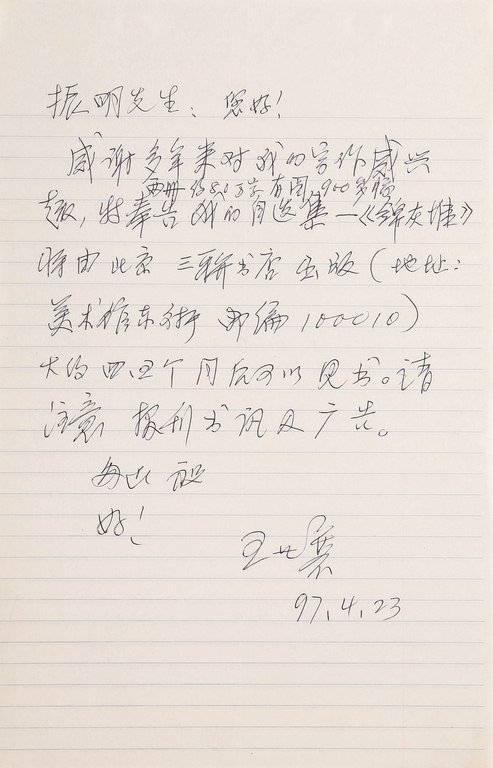 振明先生：您好！
感谢多年来对我的写作感兴
两册 80万字 有图 900多幅
趣，特奉告我的自选集—《锦灰堆》
将由北京三联书店出版（地址：
美术馆东街 邮编100010）
大约四五个月后可以见书。请
注意报刊书讯及广告。
专此 祝
好！
王世襄
97.4.23